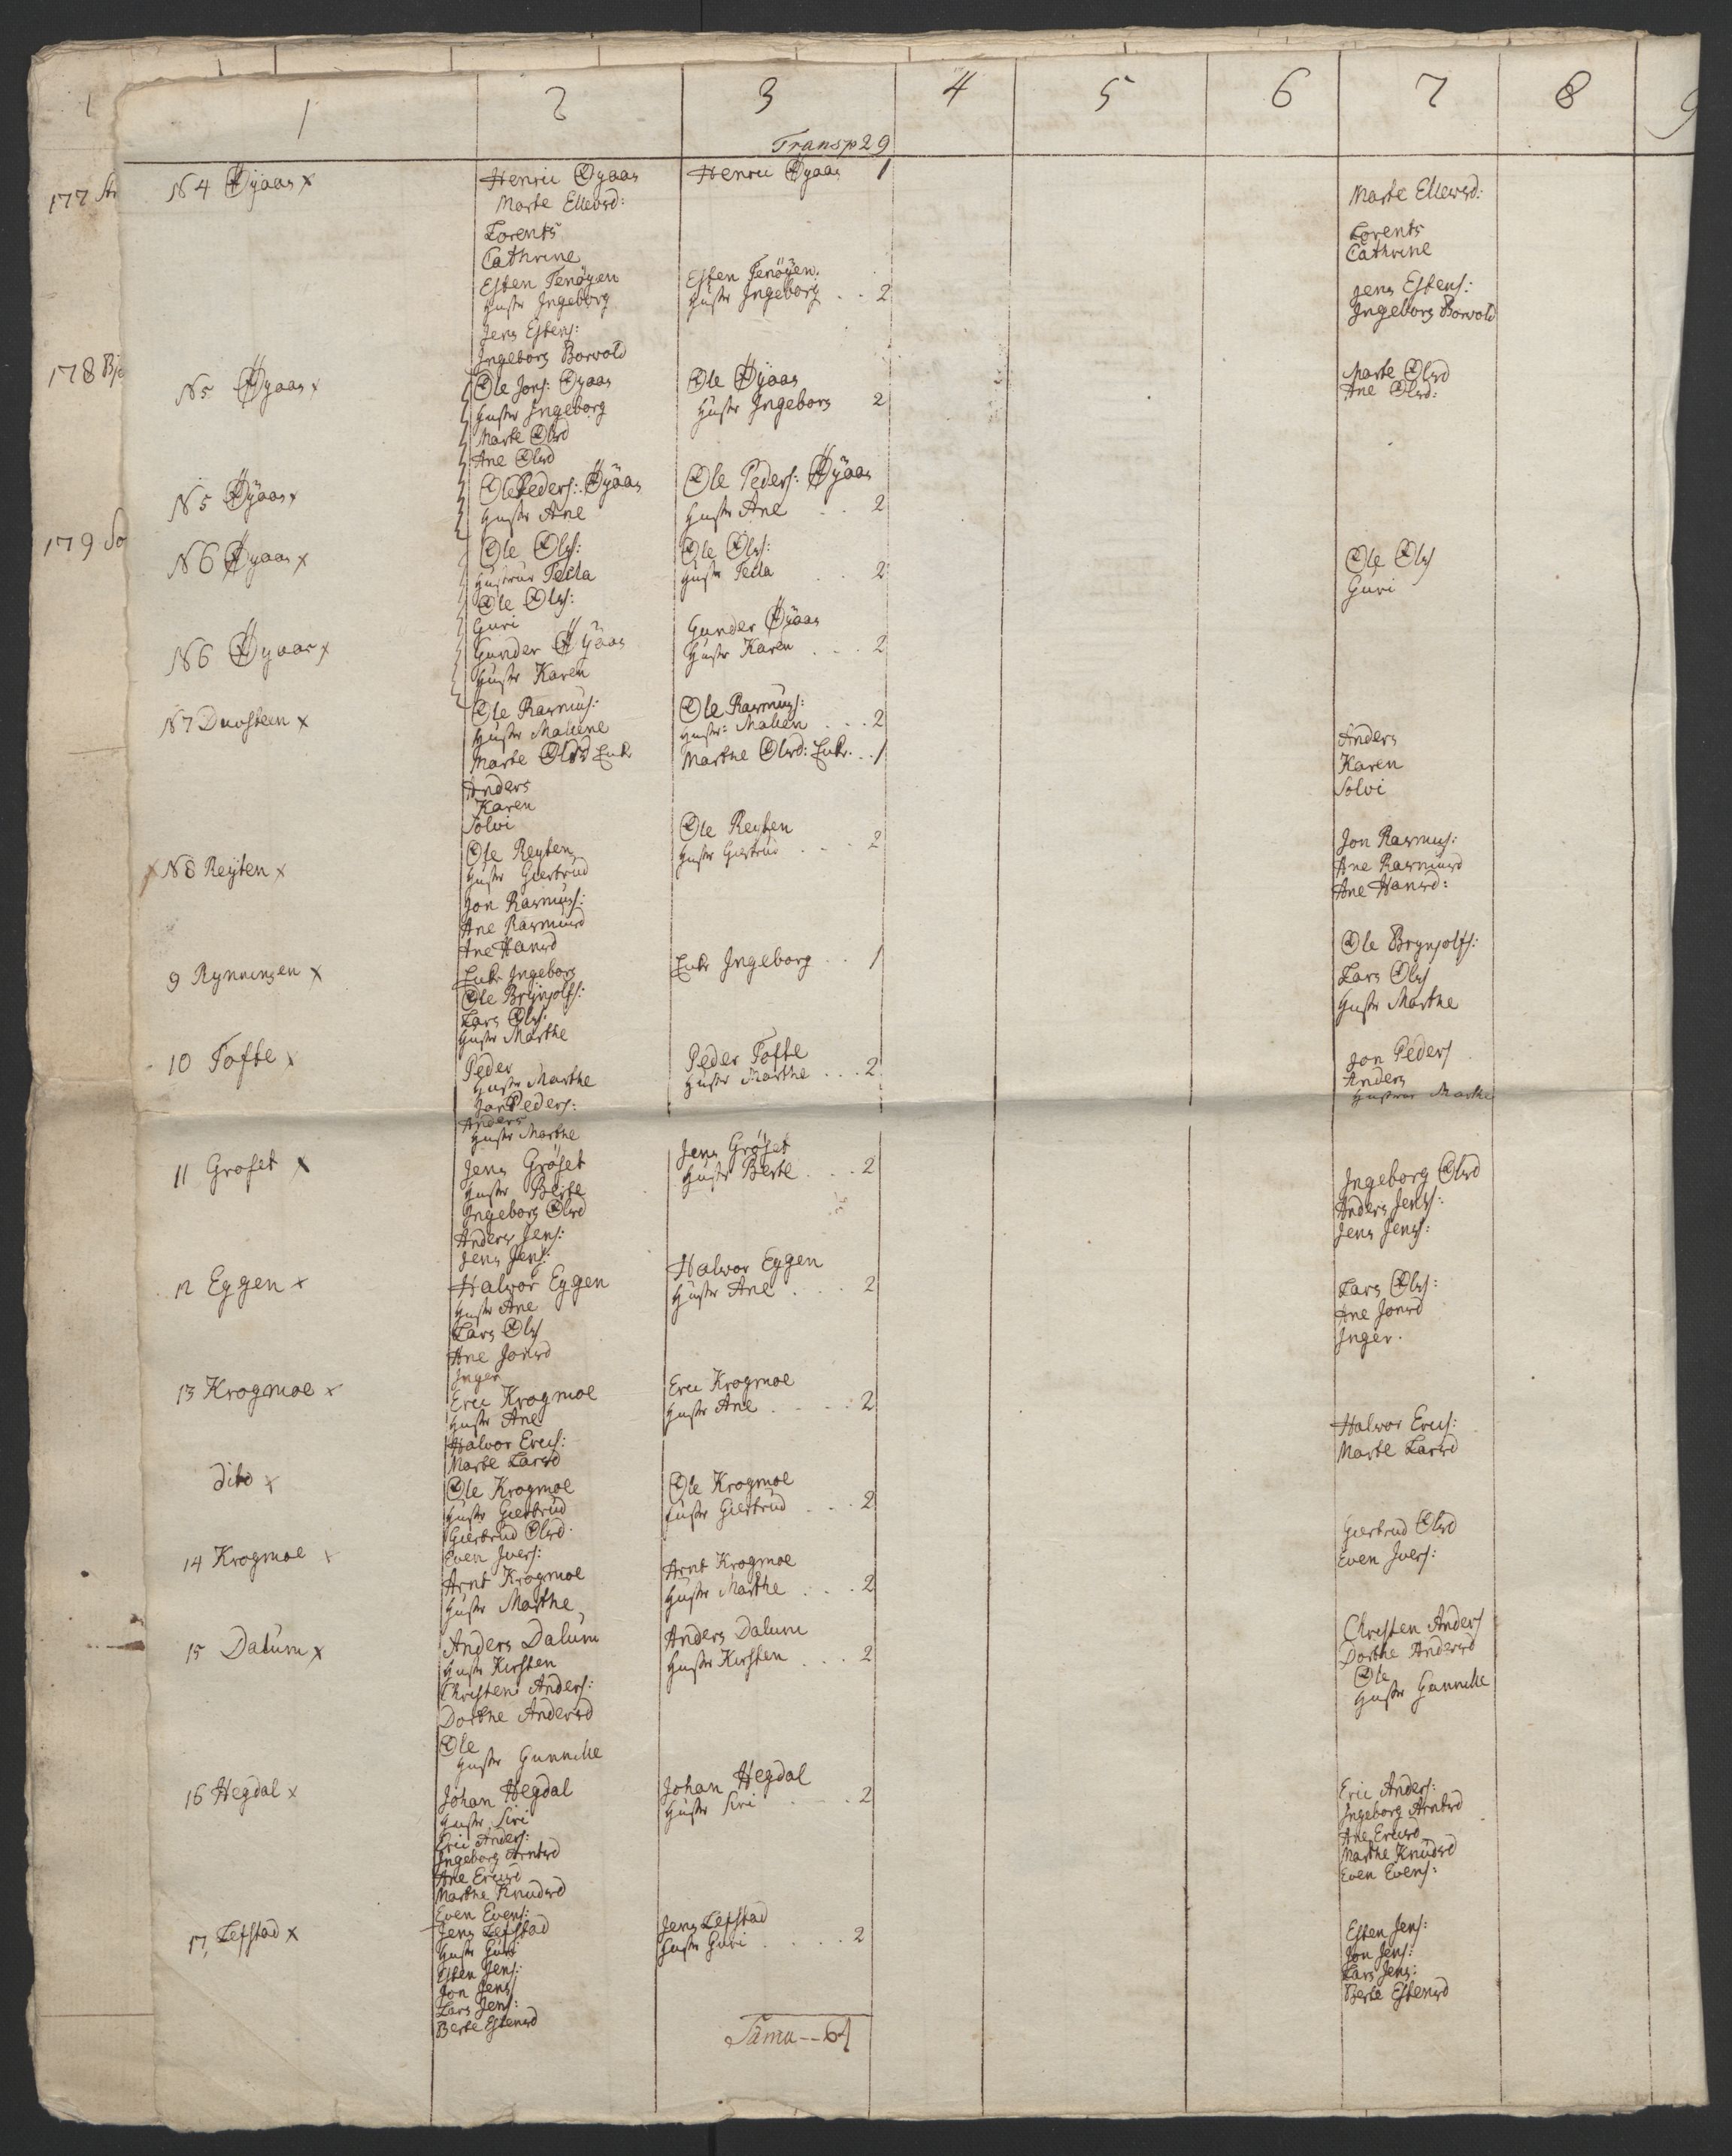 1 2 3 4 5 6 7 8 9
Transp 29
177
N 4 Øÿaas x Henric Øyaas Henric Øyaas 1
Marte Ellevsd: Marte Ellevsd:
Lorents Lorents
Cathrine Cathrine
Esten Tenöyen Esten Tenöyen
Hustr Ingeborg Hustr Ingeborg . . 2
Jens Estens: Jens Estens:
Ingeborg Borvold Ingeborg Borvold
178 Bj
N 5 Øyaas x Ole Jons: Øyaas Ole Øyaas
Hustr Ingeborg Hustr Ingeborg 2
Marte Olsd Marte Olsd
Ane Olsd Ane Olsd:
N 5 Øÿaas x Ole Peders: Øÿaas Ole Peders: Øÿaas
Hustr Ane Hustr Ane . . 2
179 So
N 6 Øyaas x Ole Ols: Ole Ols:
Hustrue Tecla Hustr Tecla . . 2
Ole Ols: Ole Ols
Guri Guri
N 6 Øyaas x Gunder Øÿaas Gunder Øÿaas
Hustr Karen Hustr Karen . . . 2
N 7 Duosteen x Ole Rasmus: Ole Rasmus:
Hustr Malene Hustr: Malien . . . 2
Marte Olsd Enke Marthe Olsd: Enke. . . 1
Anders Anders
Karen Karen
Solvi Solvi
x N 8 Reÿten x Ole Reyten Ole Reyten
Hustr Giertrud Hustr Giertrud . . . 2
Jon Rasmus: Jon Rasmus:
Ane Rasmusd Ane Rasmusd
Ane Hansd Ane Hansd:
9 Rynningen x Enke Ingeborg Enke Ingeborg . . 1
Ole Brÿnjolfs: Ole Brynjolfs:
Lars Ols: Lars Ols
Hustr Marthe Hustr Marthe
10 Tofte x Peder Peder Tofte
Hustr Marthe Hustr Marthe . . . 2
Jon Peders: Jon Peders
Anders Anders
Hustr Marthe Hustrue Marthe
11 Groset x Jens Gröset Jens Gröset
Hustr Berte Hustr Berte . . . 2
Ingeborg Olsd Ingeborg Olsd
Anders Jens: Anders Jens:
Jens Jens: Jens Jens:
12 Eggen x Halvor Eggen Halvor Eggen
Hustr Ane Hustr Ane . . . 2
Lars Ols Lars Ols:
Ane Jonsd Ane Jonsd
Inger Inger.
13 Krogmoe x Eric Krogmoe Eric Krogmoe
Hustr Ane Hustr Ane . . . . 2
Halvor Erics: Halvor Erics:
Marte Larsd Marte Larsd
dito x Ole Krogmoe Ole Krogmoe
Hustr Giertrud Hustr Giertrud . . . 2
Giertrud Olsd. Giertrud Olsd
Even Ivers: Even Ivers:
14 Krogmoe x Arnt Krogmoe Arnt Krogmoe
Hustr Marthe Hustr Marthe . . . 2
15 Dalum x Anders Dalum Anders Dalum
Hustr Kirsten Hustr Kirsten . . . 2
Christen Anders: Christen Anders
Dorthe Andersd Dorthe Andersd
Ole Ole
Hustr Gunnille Hustr Gunnille
16 Hegdal x Johan Hegdal Johan Hegdal
Hustr Siri Hustr Siri . . . 2
Eric Anders: Eric Anders:
Ingeborg Arntsd Ingeborg Arntsd
Ane Ericsd Ane Ericsd
Marthe Knudsd Marthe Knudsd
Even Evens: Even Evens:
17, Lefstad x Jens Lefstad Jens Lefstad
Hustr Guri Hustr Guri . . . . 2
Esten Jens: Esten Jens:
Jon Jens Jon Jens:
Lars Jens: Lars Jens:
Berte Estensd Berte Estensd
Suma -- 61